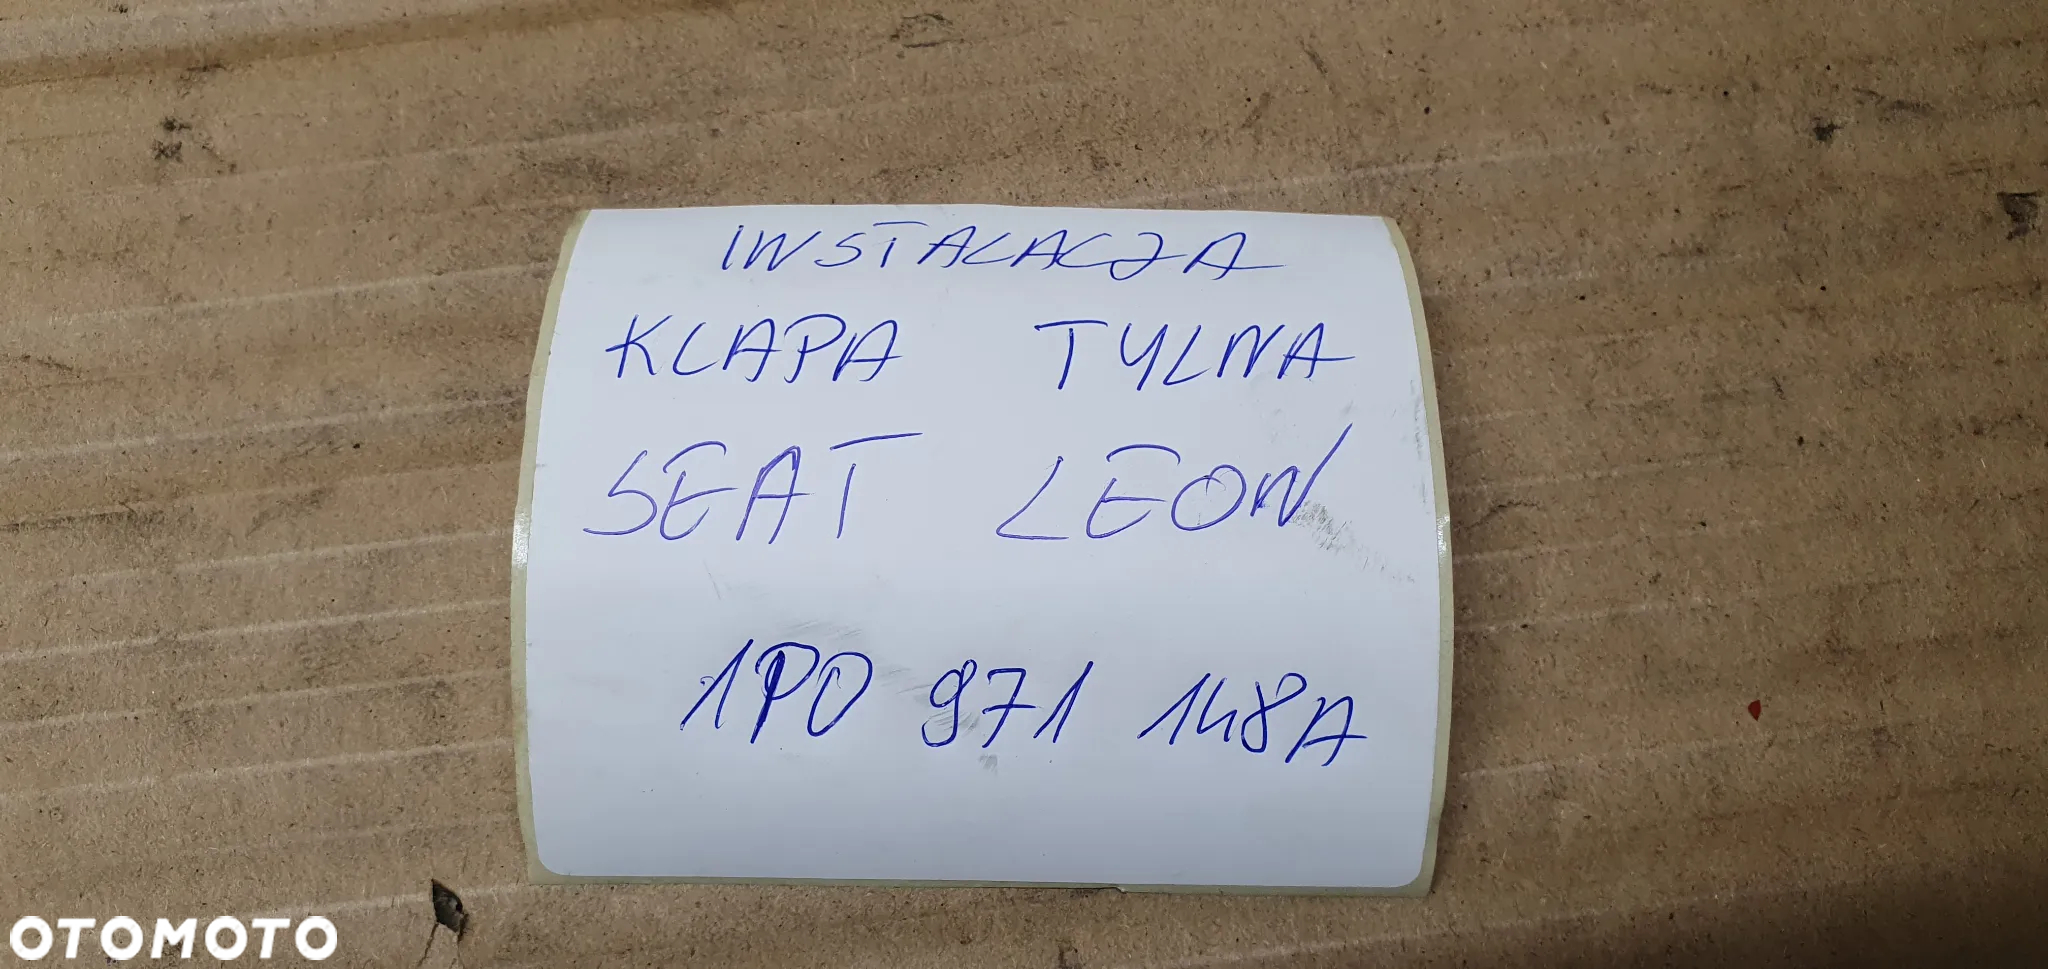 INSTALACJA
KLAPA TYLNA
SEAT LEON
1P0 971 148A
OTOMOTO